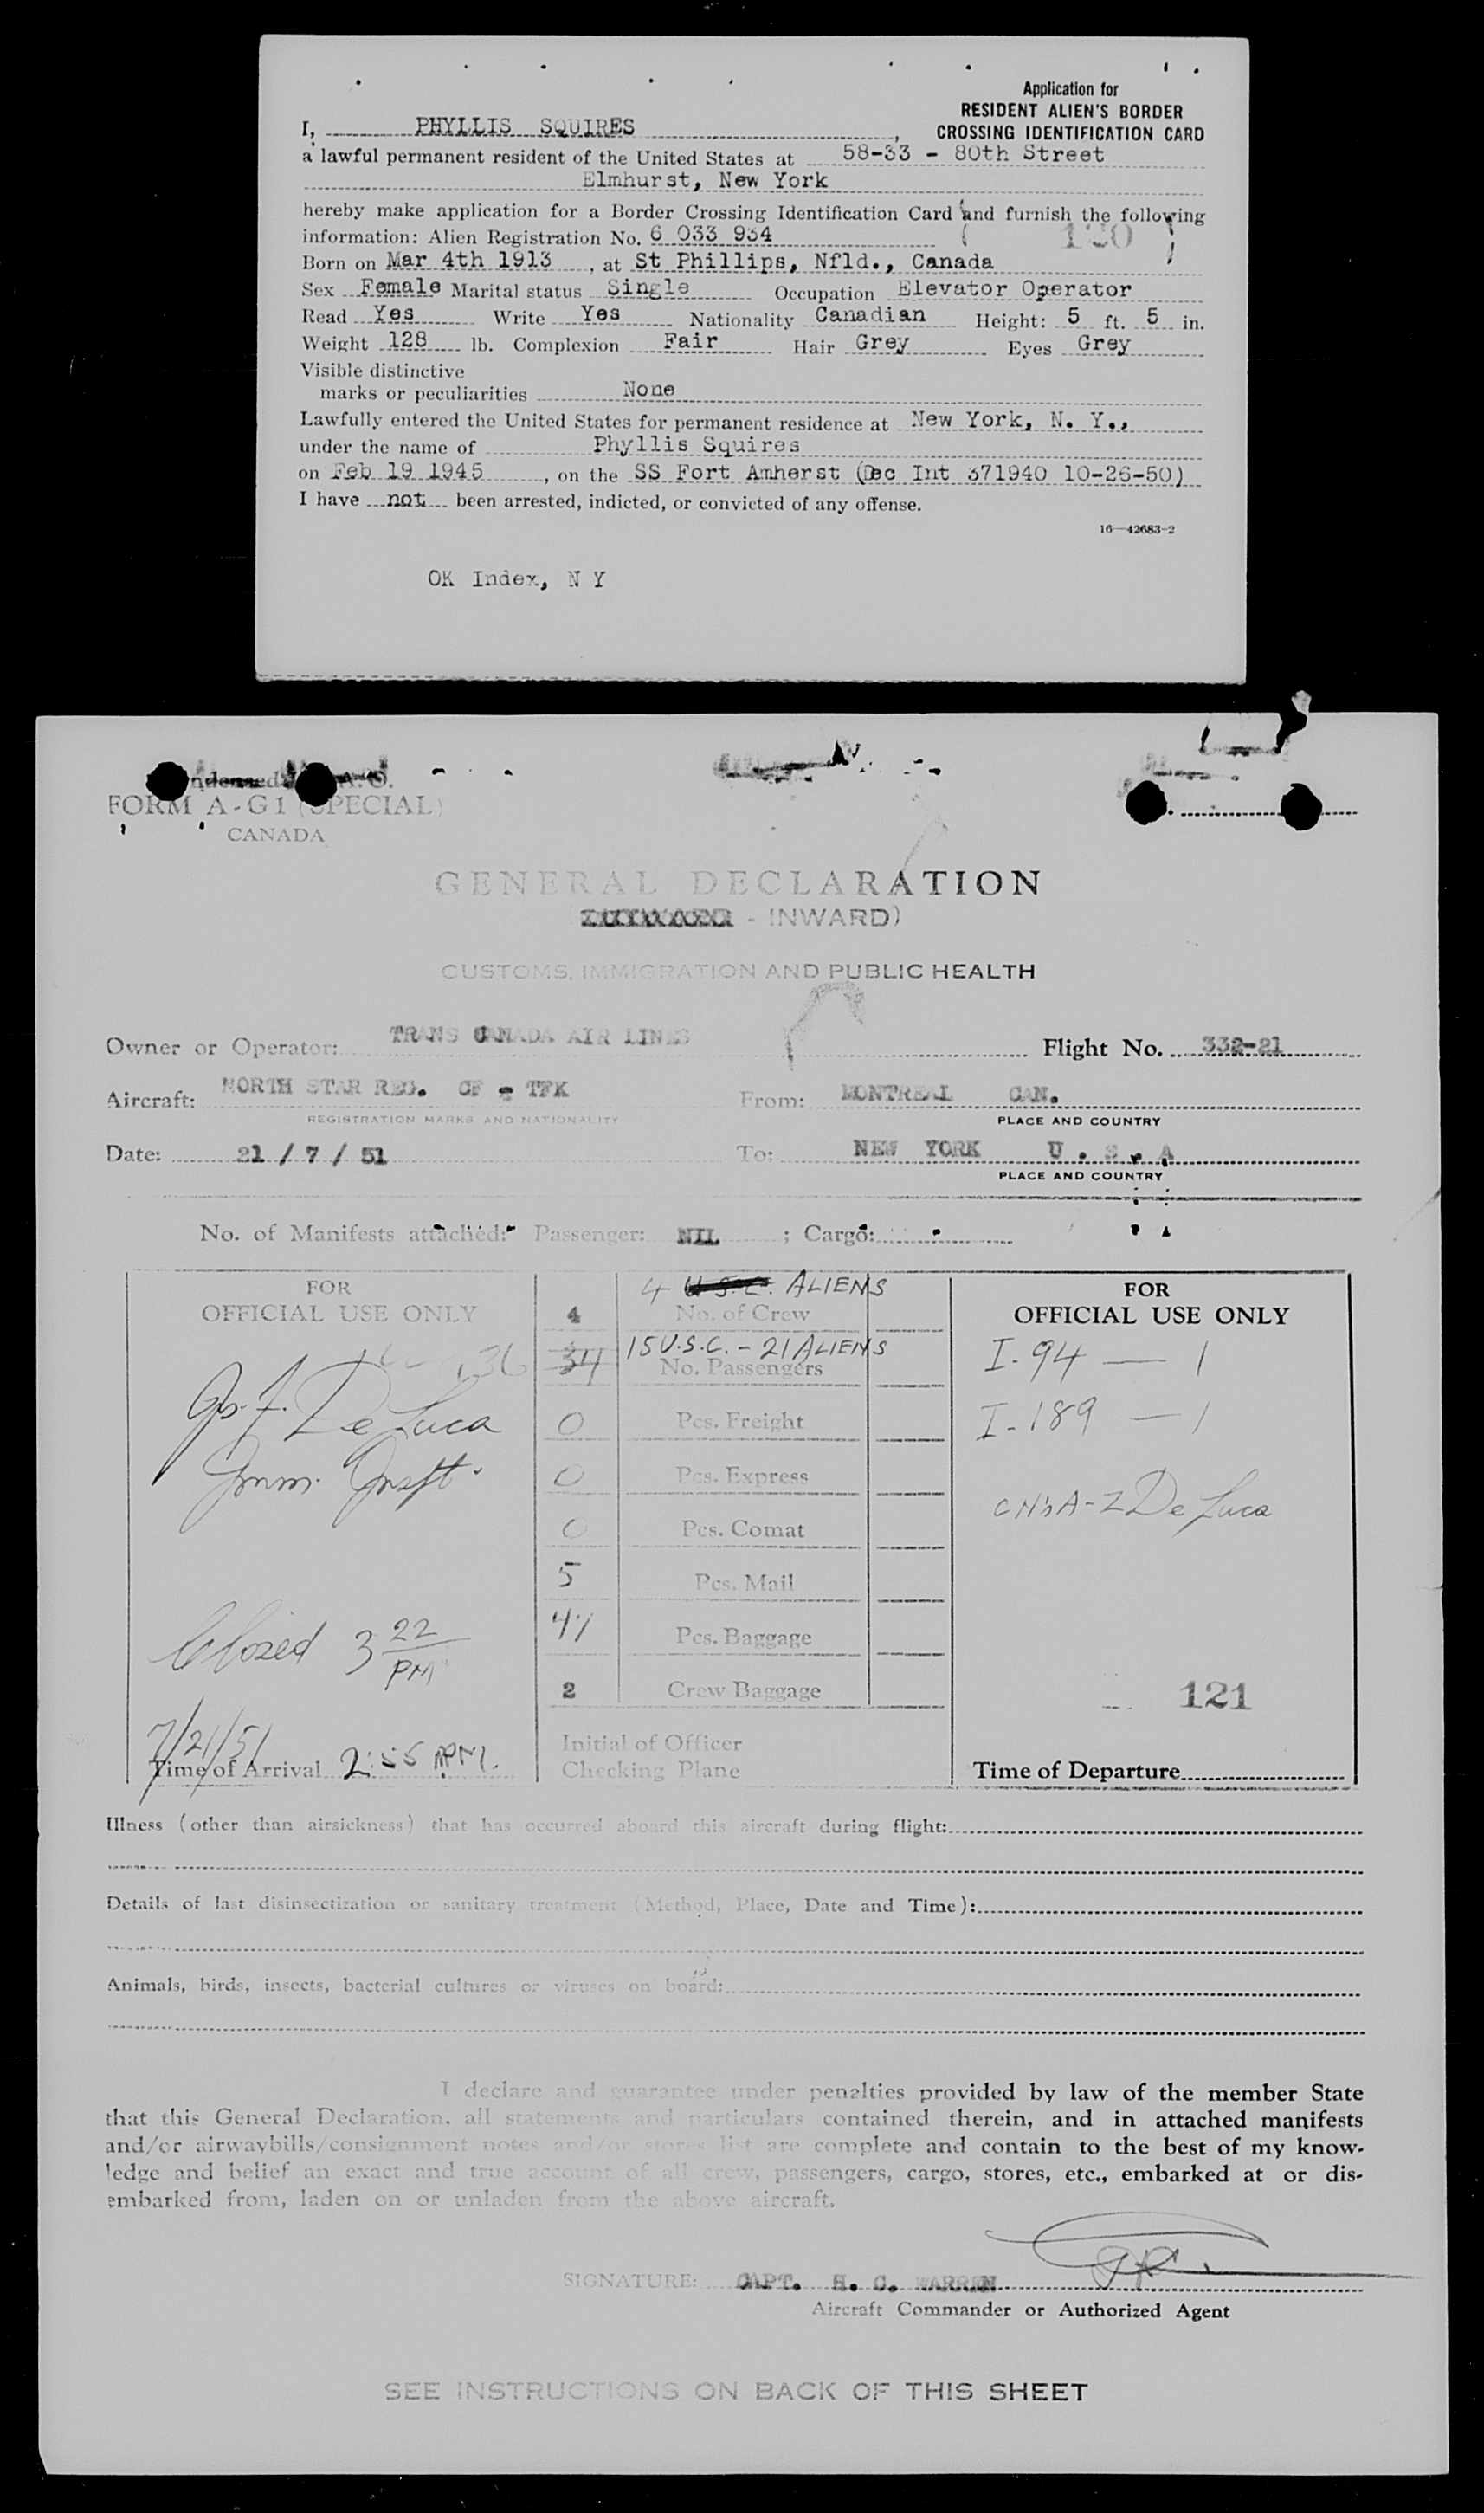 Application for
RESIDENT ALIEN'S BORDER
CROSSING IDENTIFICATION CARD
I, PHYLLIS SQUIRES,
a lawful permanent resident of the United States at 58-33 - 80th Street
Elmhurst, New York
hereby make application for a Border Crossing Identification Card and furnish the following
information: Alien Registration No. 6 033 934
120
Born on Mar 4th 1913, at St Phillips, Nfld., Canada
Sex Female Marital status Single Occupation Elevator Operator
Read Yes Write Yes Nationality Canadian Height: 5 ft. 5 in.
Weight 128 lb. Complexion Fair Hair Grey Eyes Grey
Visible distinctive
marks or peculiarities None
Lawfully entered the United States for permanent residence at New York, N. Y.,
under the name of Phyllis Squires
on Feb 19 1945, on the SS Fort Amherst (Dec Int 371940 10-26-50)
I have not been arrested, indicted, or convicted of any offense.
16—42683-2
OK Index, N Y
FORM A-G1 (SPECIAL)
CANADA
GENERAL DECLARATION
- INWARD)
CUSTOMS, IMMIGRATION AND PUBLIC HEALTH
Owner or Operator: TRANS CANADA AIR LINES Flight No. 332-21
Aircraft: NORTH STAR REG. CF - TFK From: MONTREAL CAN.
REGISTRATION MARKS AND NATIONALITY PLACE AND COUNTRY
Date: 21 / 7 / 51 To: NEW YORK U . S . A
PLACE AND COUNTRY
No. of Manifests attached: Passenger: NIL ; Cargo:
FOR
OFFICIAL USE ONLY
36
De Luca
Imm. Inspt.
Closed 3 22 PM
7/21/51
Time of Arrival 2:55 PM.
4 U.S.C. ALIENS
4 No. of Crew
15 U.S.C. - 21 ALIENS
34 No. Passengers
0 Pcs. Freight
0 Pcs. Express
0 Pcs. Comat
5 Pcs. Mail
47 Pcs. Baggage
2 Crew Baggage
Initial of Officer
Checking Plane
FOR
OFFICIAL USE ONLY
I-94 — 1
I-189 — 1
De Luca
121
Time of Departure
Illness (other than airsickness) that has occurred aboard this aircraft during flight:
Details of last disinsectization or sanitary treatment (Method, Place, Date and Time):
Animals, birds, insects, bacterial cultures or viruses on board:
I declare and guarantee under penalties provided by law of the member State
that this General Declaration, all statements and particulars contained therein, and in attached manifests
and/or airwaybills/consignment notes and/or stores list are complete and contain to the best of my know-
ledge and belief an exact and true account of all crew, passengers, cargo, stores, etc., embarked at or dis-
embarked from, laden on or unladen from the above aircraft.
SIGNATURE: CAPT. H. C. WARREN
Aircraft Commander or Authorized Agent
SEE INSTRUCTIONS ON BACK OF THIS SHEET